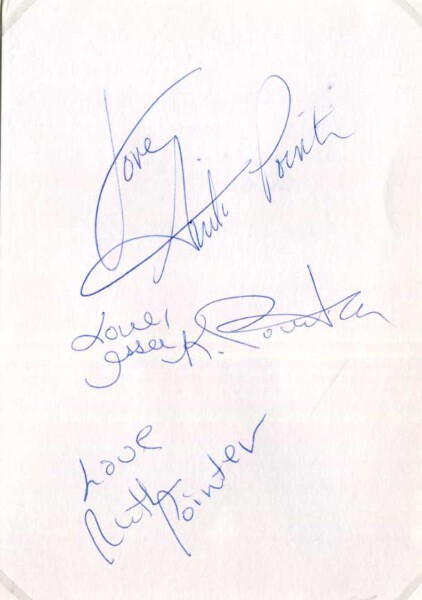 Love,
Anita Pointer
Love,
Issa K. Pointer
Love
Ruth Pointer